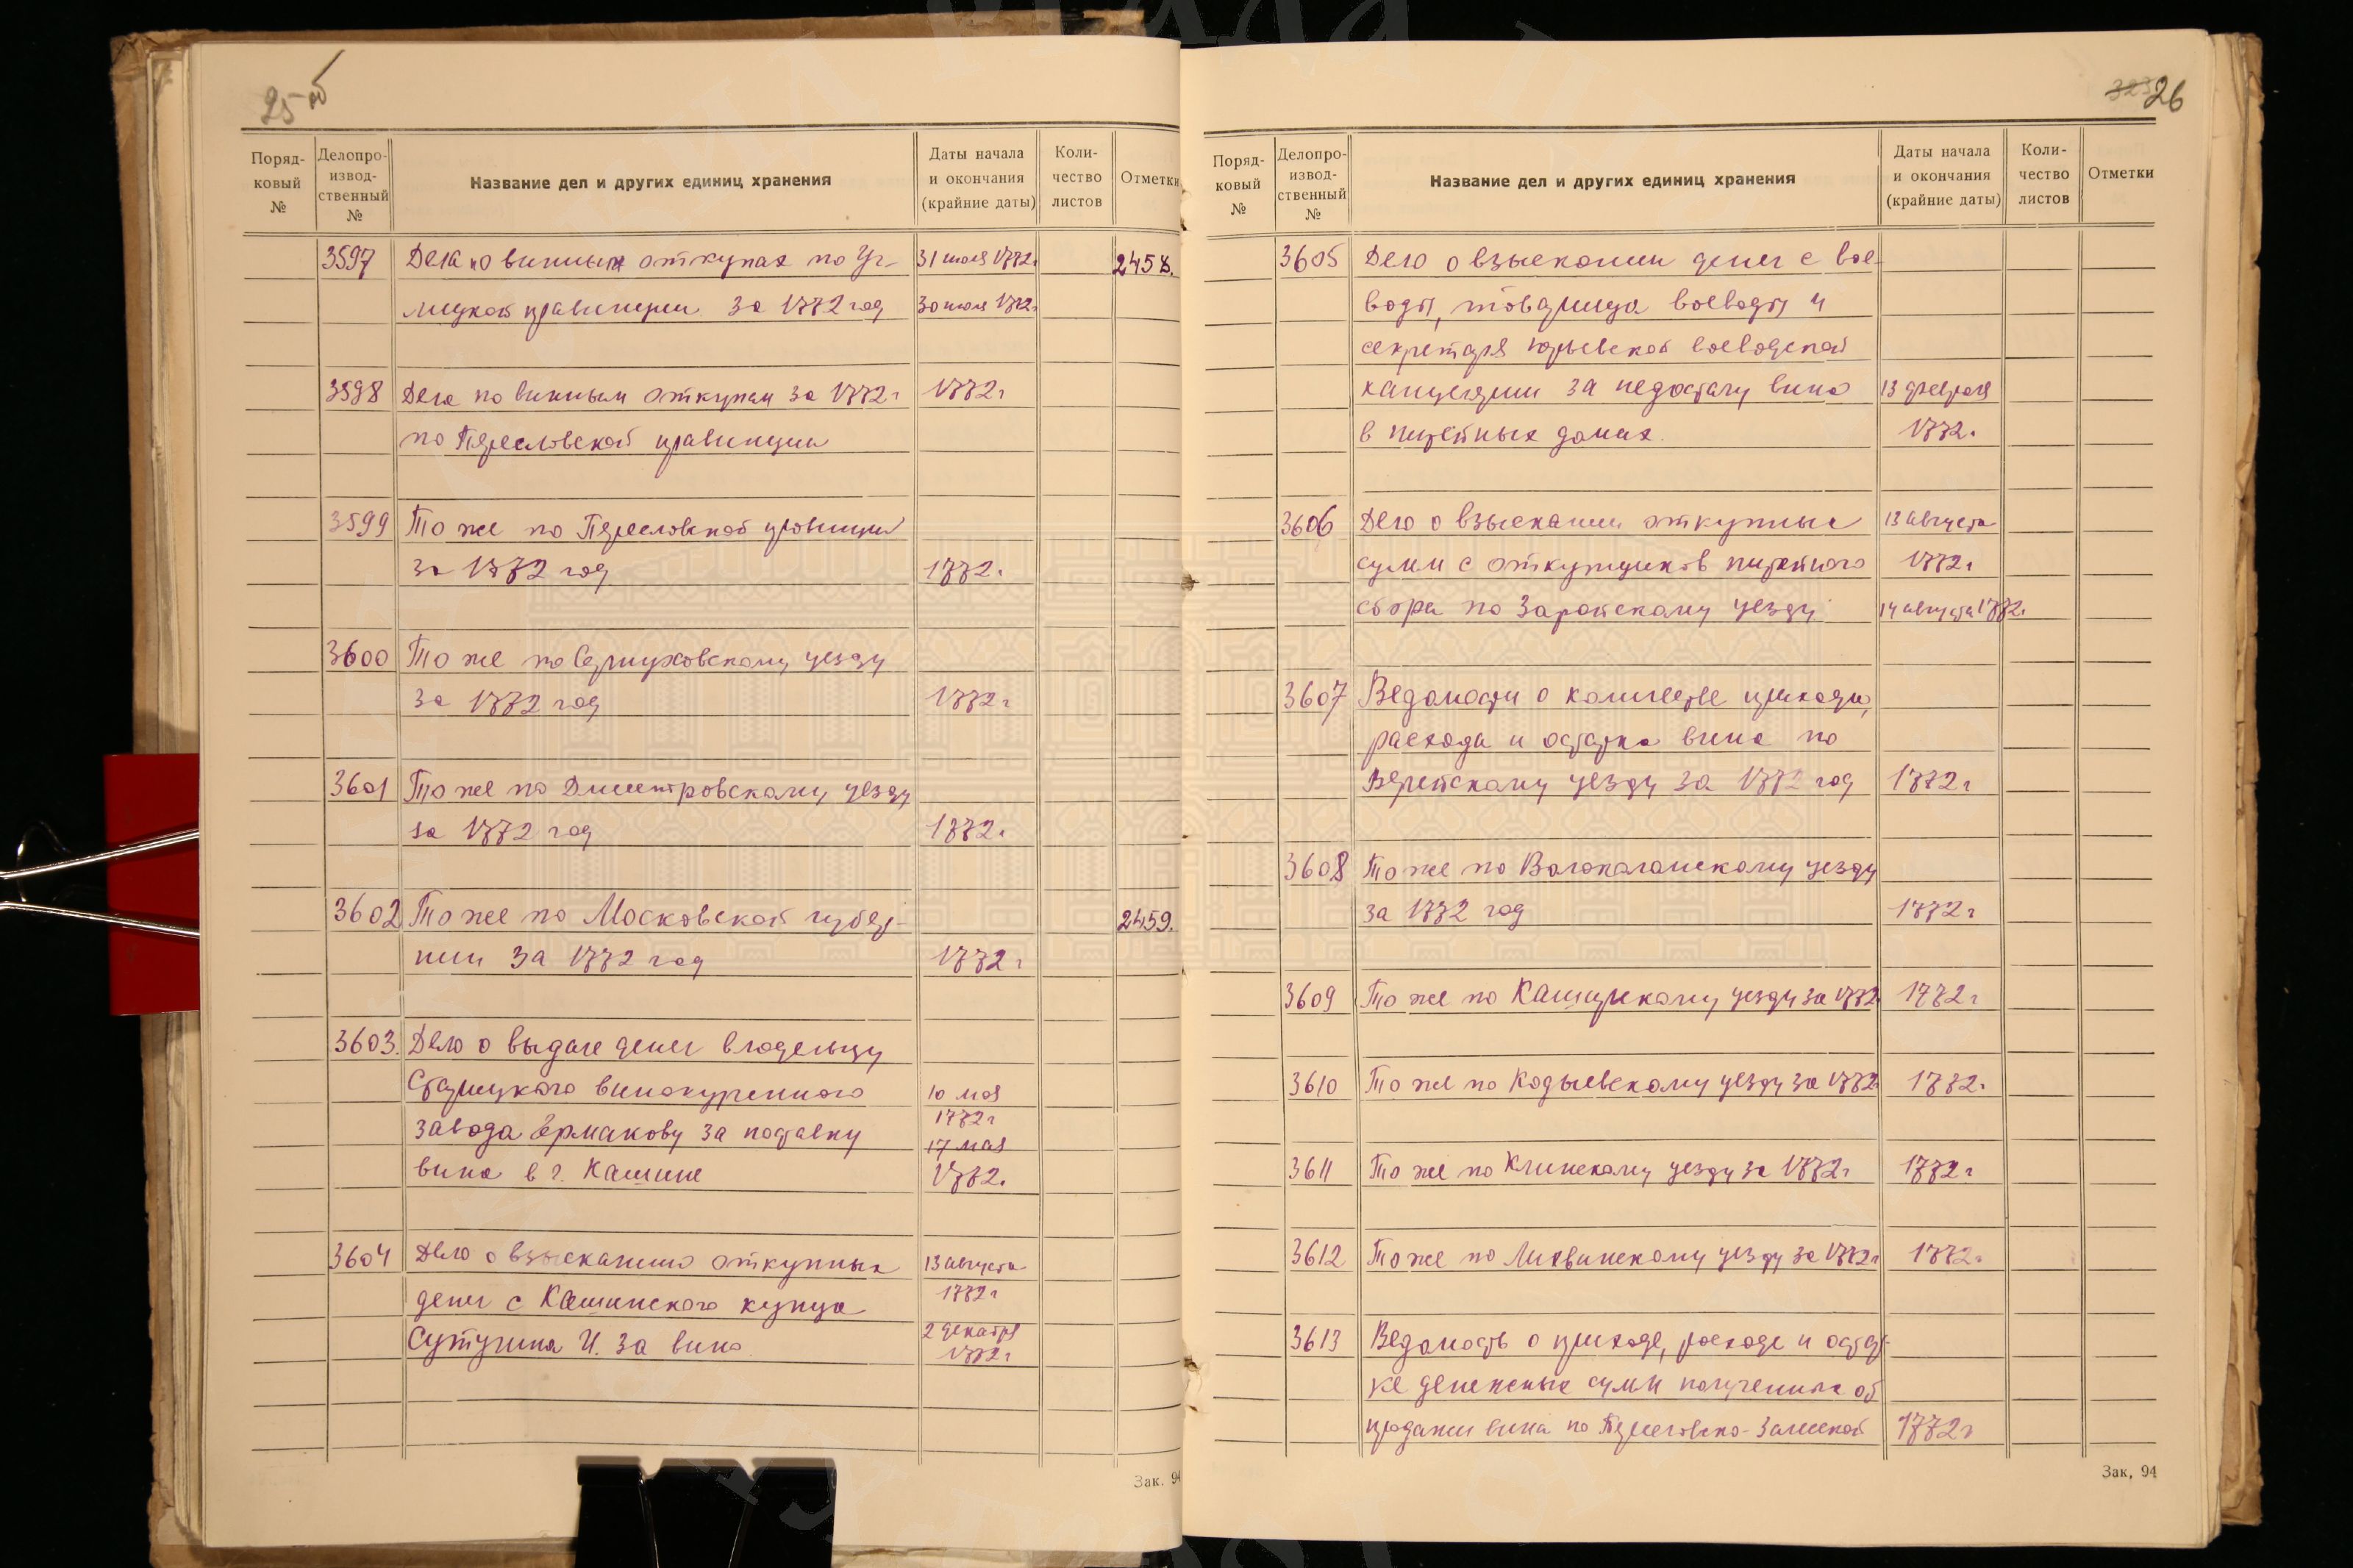 25 об
Поряд-
ковый
№
Делопро-
извод-
ственный
№
Название дел и других единиц хранения
Даты начала
и окончания
(крайние даты)
Коли-
чество
листов
Отметки
3597 Дела о винных откупах по Уг- 31 июля 1772г 2458.
лицкой провинции за 1772 год 30 июля 1772г
3598 Дела по винным откупам за 1772г 1772г
по Переславской провинции
3599 То же по Переславской провинции
за 1772 год 1772г.
3600 То же по Серпуховскому уезду
за 1772 год 1772г
3601 То же по Дмитровскому уезду
за 1772 год 1772г.
3602 То же по Московской губер- 2459.
нии за 1772 год 1772г
3603. Дело о выдаче денег владельцу
Старицкого винокуренного 10 мая
1772г
завода Ермакову за поставку 17 мая
вина в г. Кашине 1772.
3604 Дело о взысканию откупных 13 августа
денег с Кашинского купца 1772г
Сутугина И. за вино. 2 декабря
1772г
Зак. 94
323 26
Поряд-
ковый
№
Делопро-
извод-
ственный
№
Название дел и других единиц хранения
Даты начала
и окончания
(крайние даты)
Коли-
чество
листов
Отметки
3605 Дело о взыскании денег с вое-
воды, товарища воеводы и
секретаря Юрьевской воеводской
канцелярии за недостачу вина 13 февраля
в питейных домах. 1772г.
3606 Дело о взыскании откупных 13 августа
сумм с откупщиков питейного 1772г
сбора по Зарайскому уезду 14 августа 1772г.
3607 Ведомости о количестве прихода,
расхода и остатка вина по
Верейскому уезду за 1772 год 1772г
3608 То же по Волоколамскому уезду
за 1772 год 1772г
3609 То же по Каширскому уезду за 1772 1772г
3610 То же по Кадыевскому уезду за 1772 1772г.
3611 То же по Клинскому уезду за 1772г 1772г
3612 То же по Лихвинскому уезду за 1772г 1772г.
3613 Ведомость о приходе, расходе и остат-
ке денежных сумм полученных об
продажи вина по Переславско-Залеской 1772г
Зак, 94